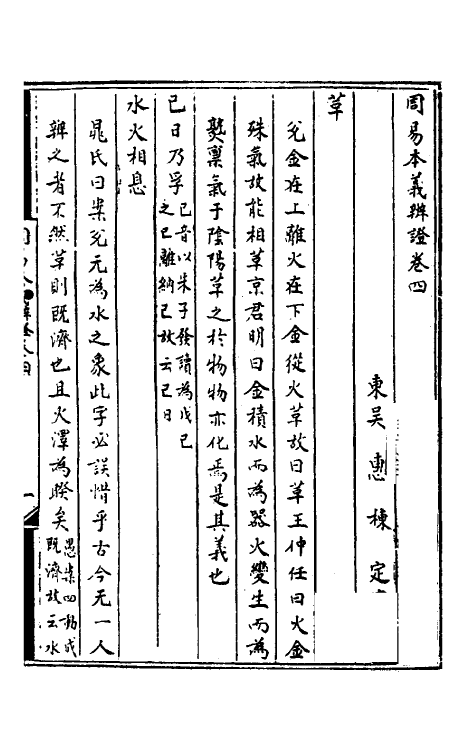 周易本義辨證卷四
東吴惠棟定
革
兊金在上離火在下金從火革故曰革王仲任曰火金
殊氣故能相革京君明曰金積水而為器火變生而為
爨稟氣于陰陽革之於物物亦化焉是其義也
已日乃孚 已音以朱子發讀為戊己
之己離納己故云己日
水火相息
晁氏曰案兊元為水之象此字必誤惜乎古今无一人
辨之者不然革則既濟也且火澤為睽矣 愚案四動成
既濟故云水